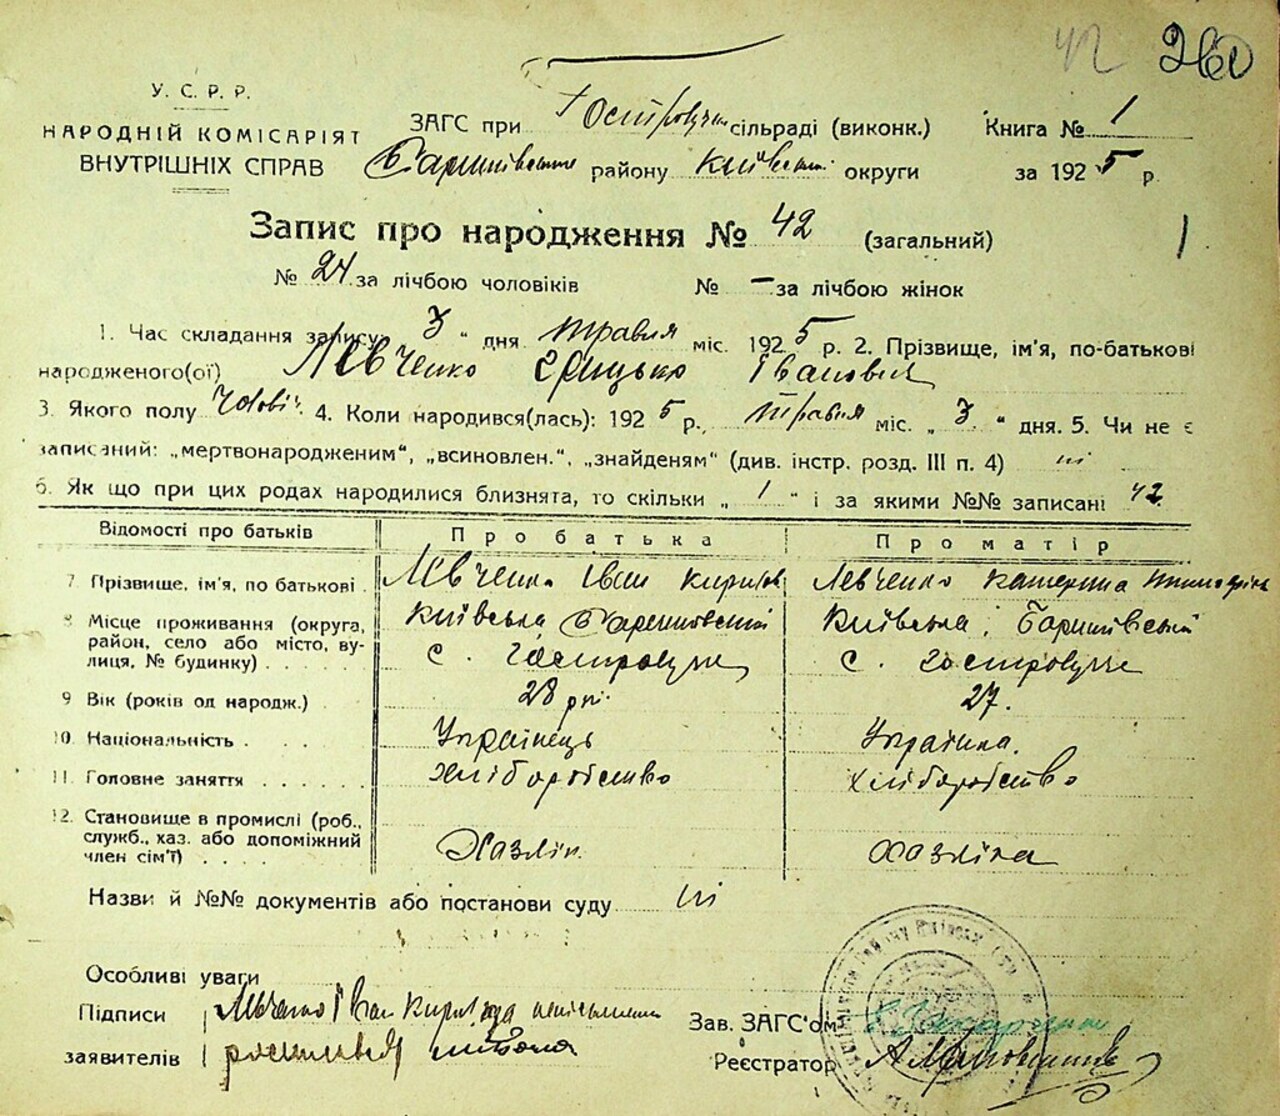 42 260
У. С. Р. Р.
НАРОДНІЙ КОМІСАРІЯТ
ВНУТРІШНІХ СПРАВ
ЗАГС при Гостролучи сільраді (виконк.) Книга № 1
Баришівськ району Київськ округи за 1925 р.
Запис про народження № 42 (загальний)
№ 24 за лічбою чоловіків № – за лічбою жінок
1. Час складання запису 3 " дня травня міс. 1925 р. 2. Прізвище, ім'я, по-батькові
народженого(ої) Левченко Грицько Іванович
3. Якого полу Чолові 4. Коли народився(лась): 1925 р., травня міс. „ 3 " дня. 5. Чи не є
записаний: „мертвонародженим", „всиновлен.", „знайденям" (див. інстр. розд. III п. 4) ні
6. Як що при цих родах народилися близнята, то скільки „ 1 " і за якими №№ записані 42
Відомості про батьків Про батька Про матір
7 Прізвище, ім'я, по батькові Левченко Іван Кирилов Левченко Катерина
8 Місце проживання (округа, Київська Баришовський Київська, Баришівський
район, село або місто, ву-
лиця, № будинку) с. Гостролучче с. Гостролучче
9 Вік (років од народж.) 28 рп. 27.
10. Національність Українець Українка.
11. Головне заняття Хліборобство Хліборобство
12. Становище в промислі (роб.,
служб., хаз. або допоміжний
член сім'ї) Хазяїн. Хазяіка
Назви й №№ документів або постанови суду ні
Особливі уваги
Підписи Левченко Іван Кирилов
заявителів
Зав. ЗАГС'ом
Реєстратор